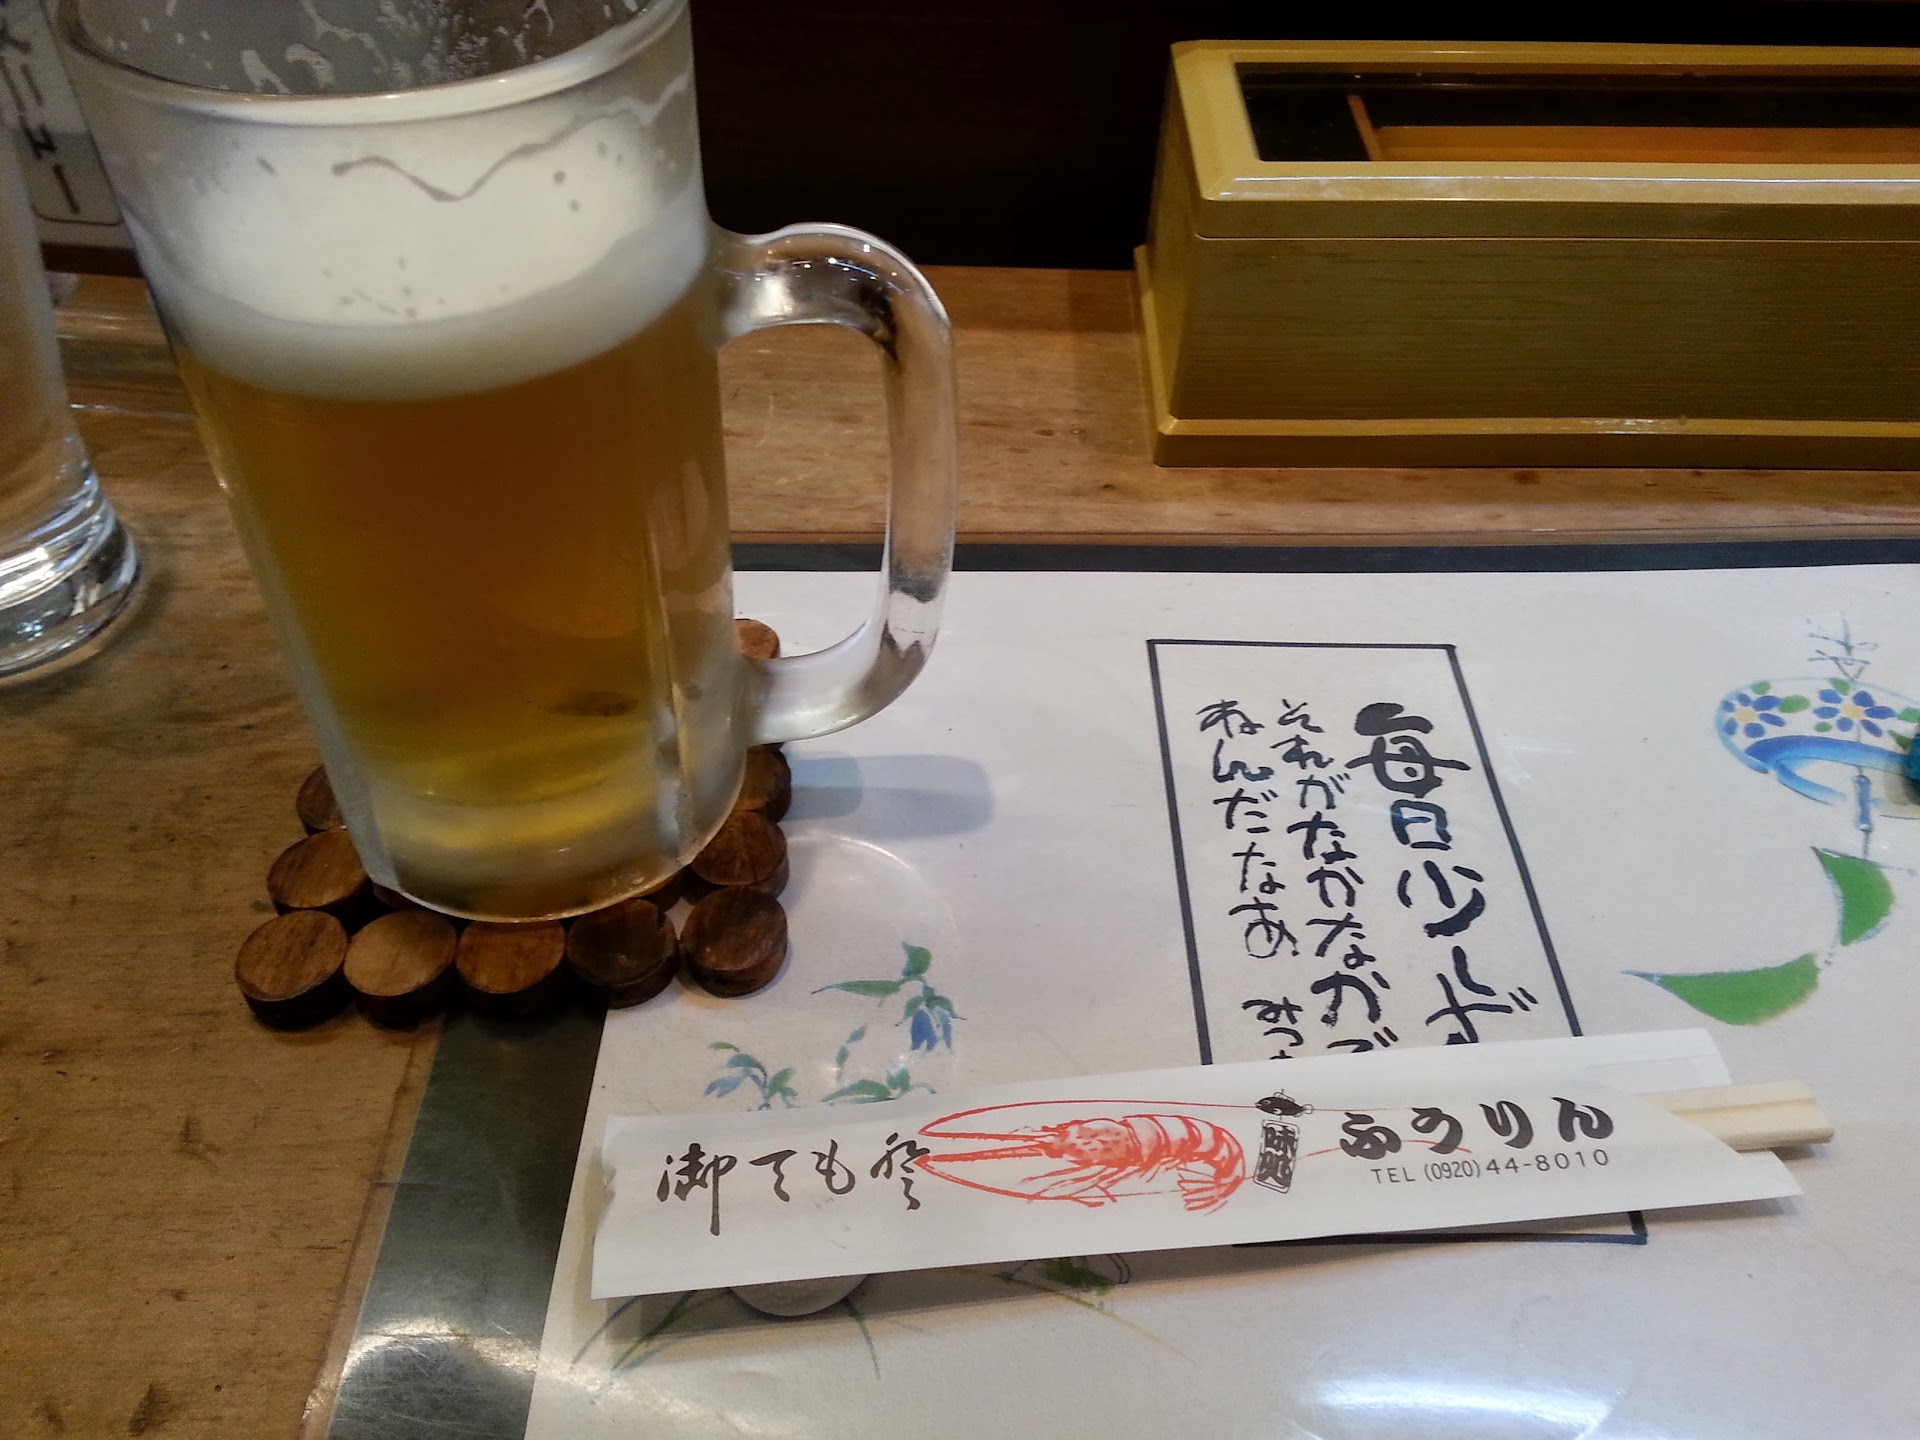 メニュー
毎日少しず
それがなかなかで
ねんだなあ みつ
御てもと
味処
ふうりん
TEL (0920) 44-8010